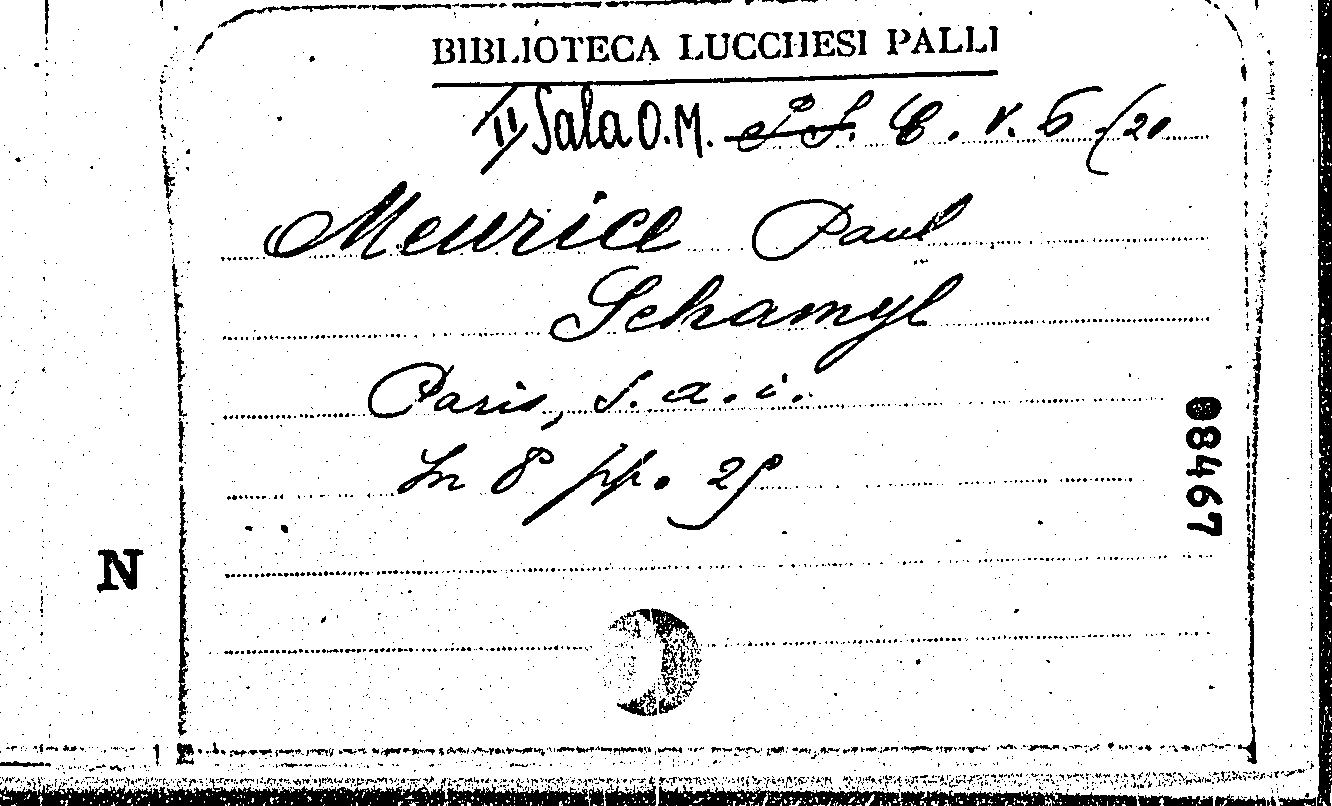 BIBLIOTECA LUCCHESI PALLI
II Sala O.M. C. V. 6 (20
Meurice Paul
Schamyl
Paris, s. a. i.
In 8º pp. 29
08467
N